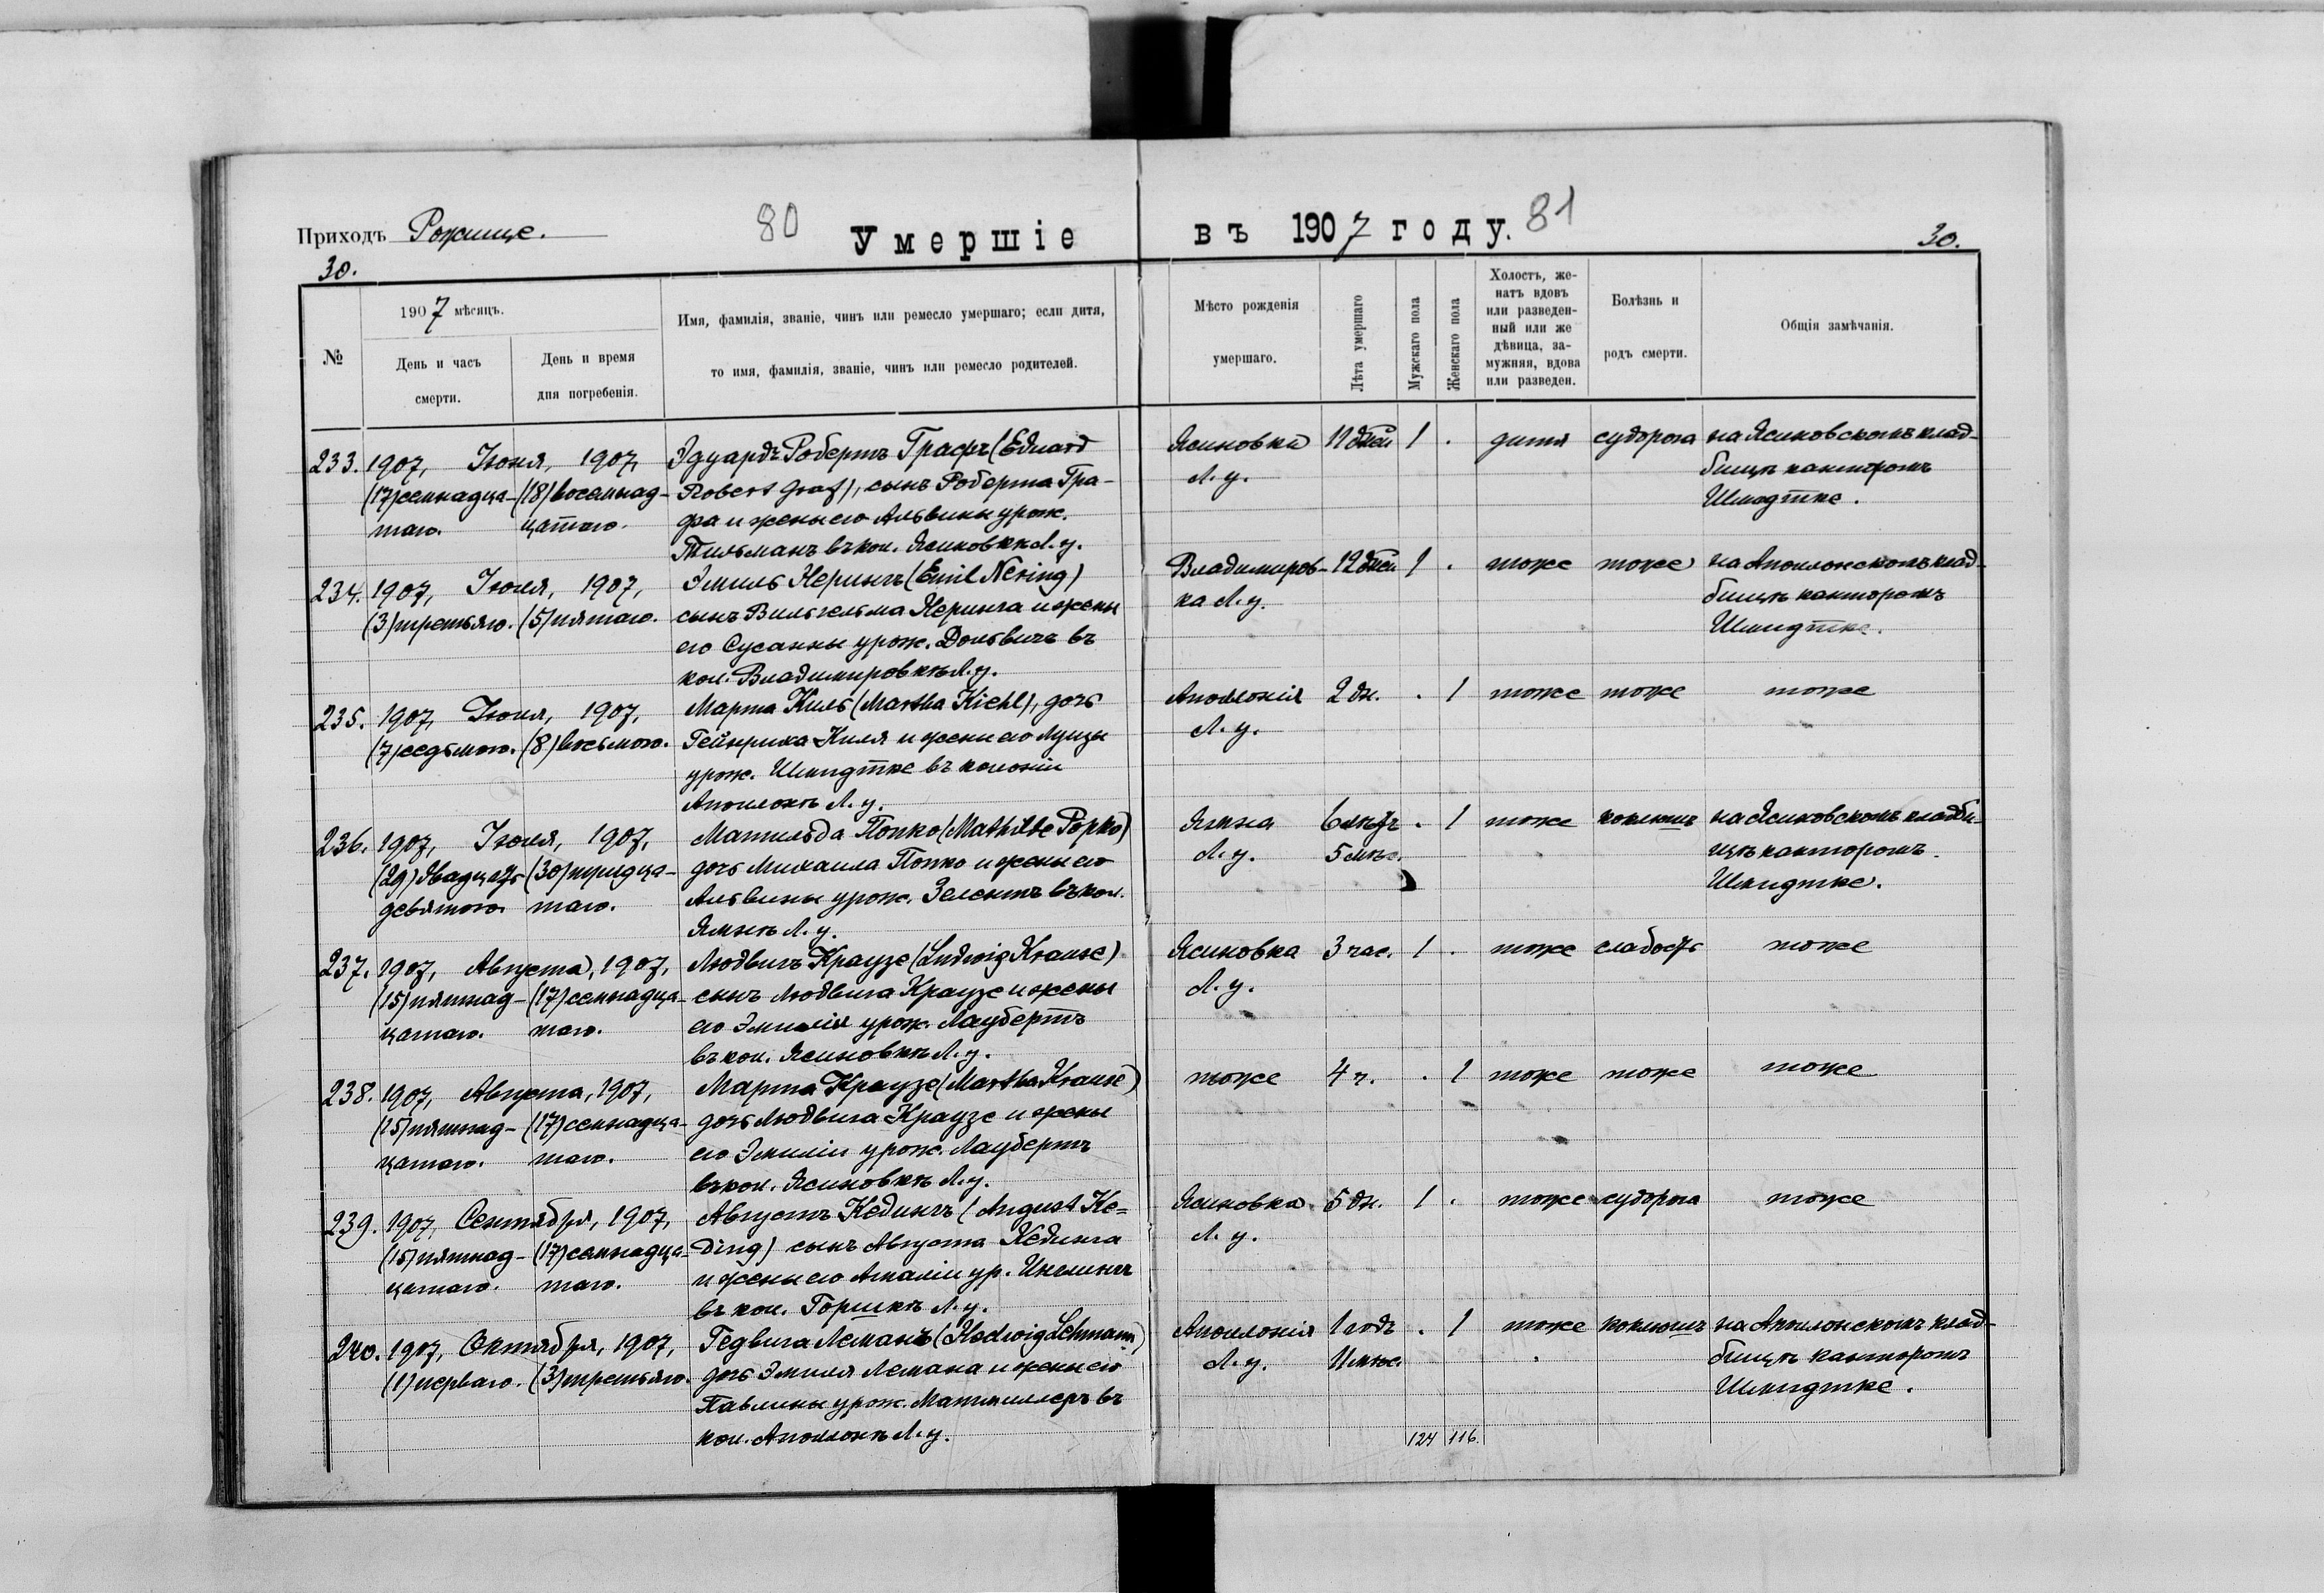 Приходъ Рожище.
80
Умершіе
въ 1907 году.
81
30.
30.
№
1907 мѣсяцъ.
День и часъ
смерти.
День и время
дня погребенія.
Имя, фамилія, званіе, чинъ или ремесло умершаго; если дитя,
то имя, фамилія, званіе, чинъ или ремесло родителей.
Мѣсто рожденія
умершаго.
Лѣта умершаго
Мужскаго пола
Женскаго пола
Холостъ, же-
натъ вдовъ
или разведен-
ный или же
дѣвица, за-
мужняя, вдова
или разведен.
Болѣзнь и
родъ смерти.
Общія замѣчанія.
233. 1907, Іюня, 1907, Эдуардъ Робертъ Графъ (Eduard Ясиновка 11 дней 1 . дитя судорога на Ясиновскомъ клад-
(17) семнадца- (18) восемнад- Robert Graf), сынъ Роберта Гра- Л. у. бищѣ канторомъ
таго. цатаго. фа и жены его Альвины урож. Шмидтке.
Тильманъ въ кол. Ясиновкѣ Л. у.
234. 1907, Іюля, 1907, Эмиль Нерингъ (Emil Nering) Владимиров- 12 дней 1 . тоже тоже на Аполонскомъ клад-
(3) третьяго. (5) пятаго. сынъ Вильгельма Неринга и жены ка Л. у. бищѣ канторомъ
его Сусанны урож. въ Шмидтке.
кол. Владимировкѣ Л. у.
235. 1907, Іюля, 1907, Марта Киль (Martha Kiehl), дочь Аполлонія 2 дн. . 1 тоже тоже тоже
(7) седьмого. (8) восьмого. Гейнриха Киля и жены его Луизы Л. у.
урож. Шмидтке въ колоніи
Аполонѣ Л. у.
236. 1907, Іюля, 1907, Матильда Попко (Mathilde Popko) Ямна 6 лѣтъ . 1 тоже коклюшъ на Ясиновскомъ кладби-
(29) двадцать (30) тридца- дочь Михаила Попко и жены его Л. у. 5 мѣс. щѣ канторомъ
девятого таго. Альвины урож. Зелентъ въ кол. Шмидтке.
Ямнѣ Л. у.
237. 1907, Августа, 1907, Людвигъ Краузе (Ludwig Krause) Ясиновка 3 час. 1 . тоже слабость тоже
(15) пятнад- (17) семнадца- сынъ Людвига Краузе и жены Л. у.
цатаго. таго. его Эмилія урож. Лаубертъ
въ кол. Ясиновкѣ Л. у.
238. 1907, Августа, 1907, Марта Краузе (Martha Krause) тоже 4 ч. . 1 тоже тоже тоже
(15) пятнад- (17) семнадца- дочь Людвига Краузе и жены
цатаго. таго. его Эмиліи урож. Лаубертъ
въ кол. Ясиновкѣ Л. у.
239. 1907, Сентября, 1907, Августъ Кедингъ (August Ke= Ясиновка 5 дн. 1 . тоже судорога тоже
(15) пятнад- (17) семнадца- ding) сынъ Августа Кединга Л. у.
цатаго. таго. и жены его Амаліи ур.
въ кол. Горшкѣ Л. у.
240. 1907, Октября, 1907, Гедвига Леманъ (Hedwig Lehmann) Аполлонія 1 годъ . 1 тоже коклюшъ на Аполонскомъ клад-
(1) перваго. (3) третьяго. дочь Эмиля Лемана и жены его Л. у. 11 мѣс. бищѣ канторомъ
Павлины урож. въ Шмидтке.
кол. Аполлонѣ Л. у.
124 116.